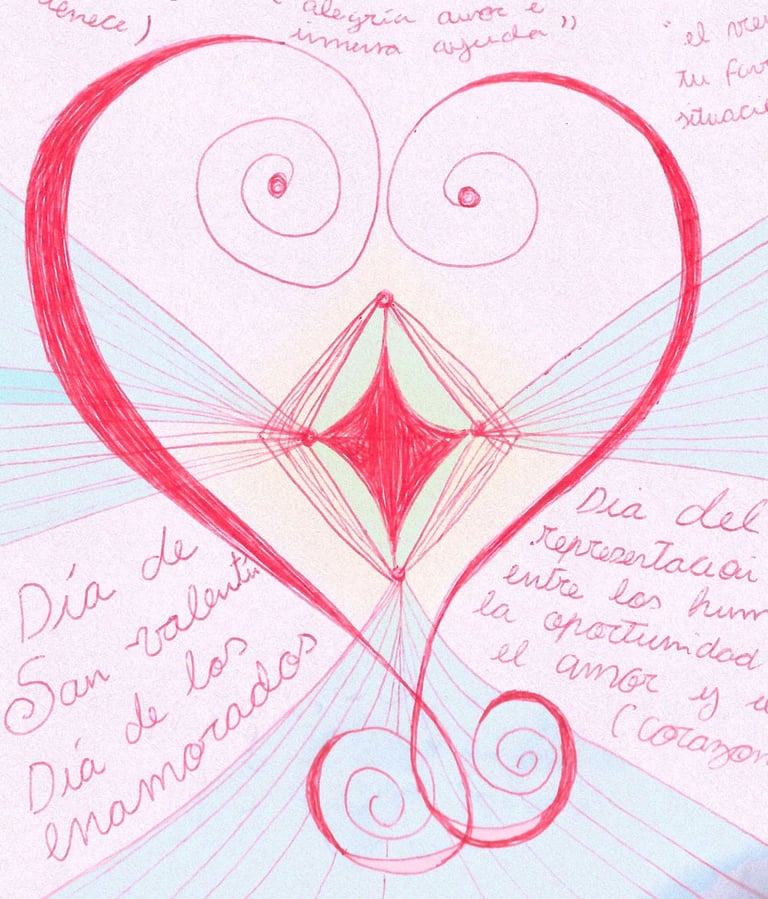 alegría amor e
inmensa ayuda"
"el
tu
Día de
San valentín
Día de los
enamorados
Dia del
representacion
entre los
la oportunidad
el amor y
(corazon